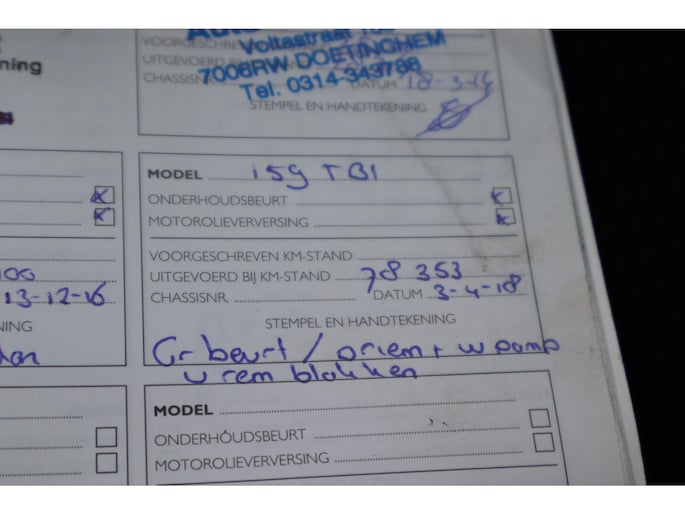 ning
VOORGESCHRE
Voltastraat
UITGEVOERD B
7006RW DOETINCHEM
CHASSISN
Tel. 0314-343788
DATUM 18-3-14
STEMPEL EN HANDTEKENING
13-12-16
NING
MODEL 159 TBI
ONDERHOUDSBEURT
MOTOROLIEVERVERSING
VOORGESCHREVEN KM-STAND
UITGEVOERD BIJ KM-STAND 78 353
CHASSISNR. DATUM 3-4-18
STEMPEL EN HANDTEKENING
Gr beurt / driem + w pomp
v rem blokken
MODEL
ONDERHOUDSBEURT
MOTOROLIEVERVERSING